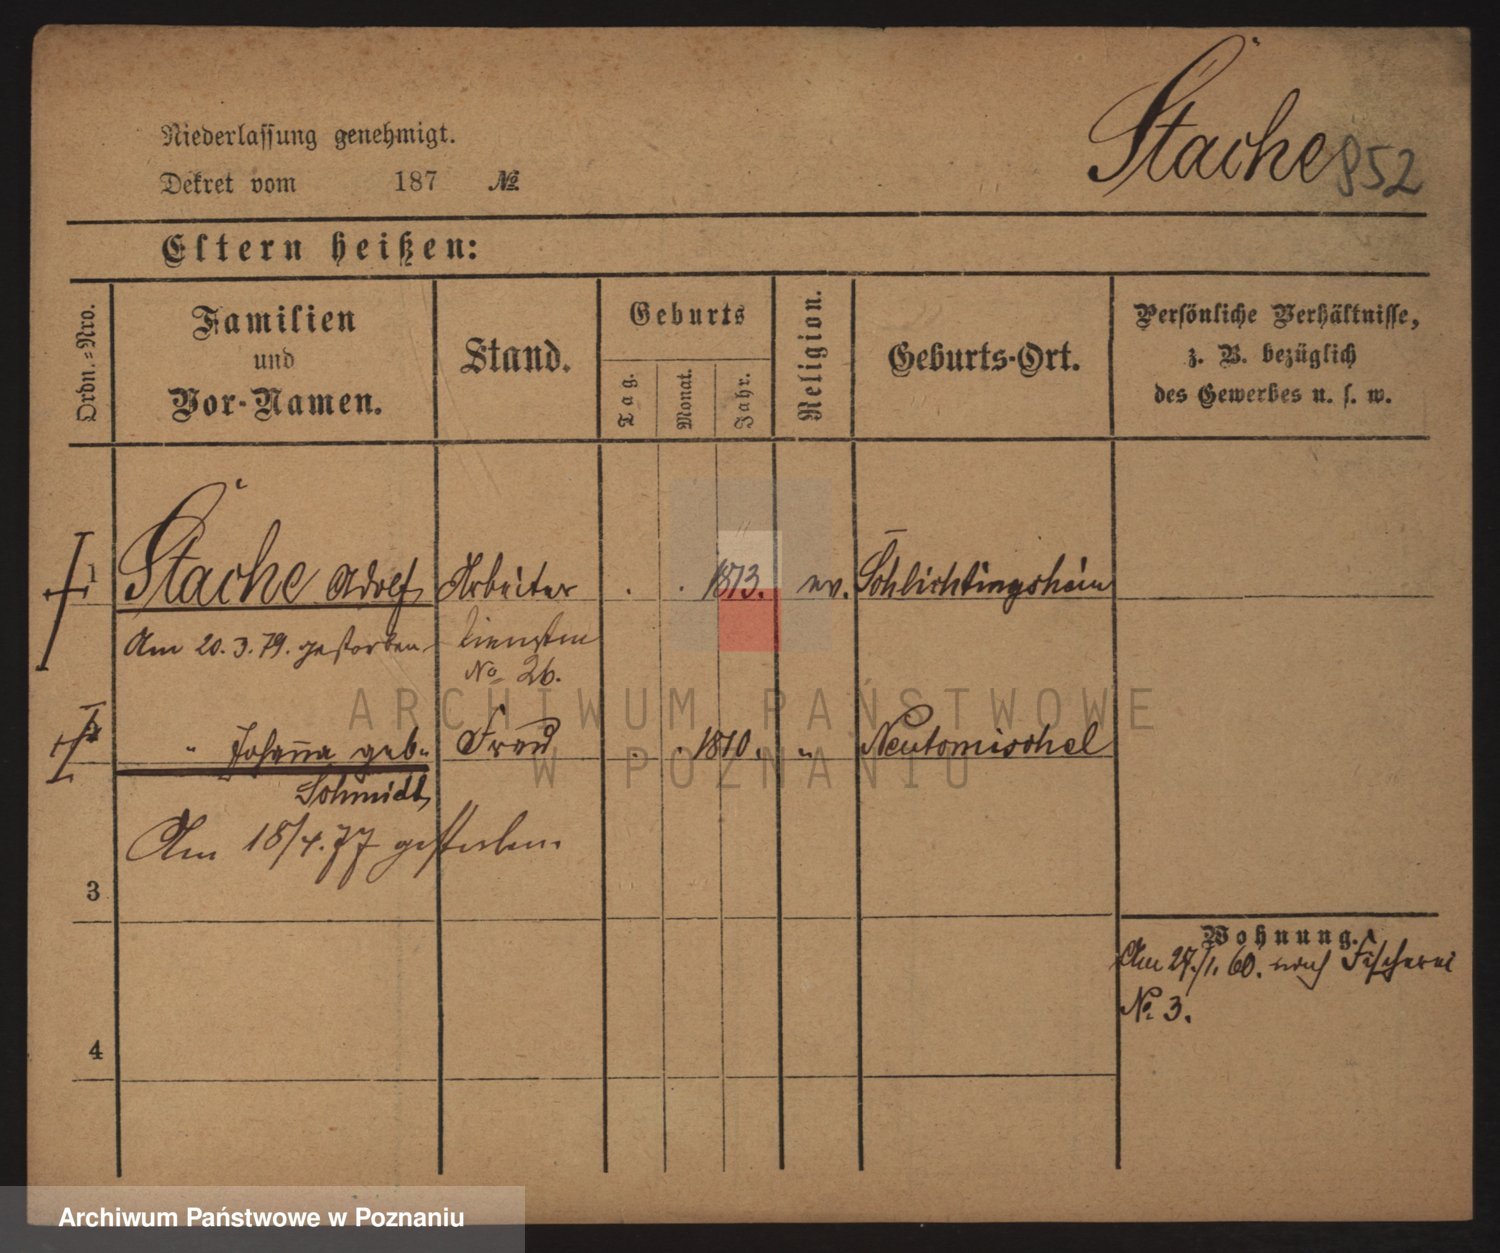 Niederlassung genehmigt.
Dekret vom 187 №
Stache 852
Eltern heißen:
Ordn.=Nro.
Familien und Vor-Namen.
Stand.
Geburts
Tag.
Monat.
Jahr.
Religion.
Geburts-Ort.
Persönliche Verhältnisse,
z. B. bezüglich
des Gewerbes u. s. w.
1 Stache Adolf Arbeiter . . 1813. ev. Schlichtingsheim
Am 20.3.79. gestorben
No 26.
2 " Johanna geb. Frau . . 1810. " Neutomischel
Schmidt
Am 18/4.77 gestorben.
3
Wohnung.
Am 27./1. 60. nach Fischerei
No 3.
4
ARCHIWUM PAŃSTWOWE
W POZNANIU
Archiwum Państwowe w Poznaniu